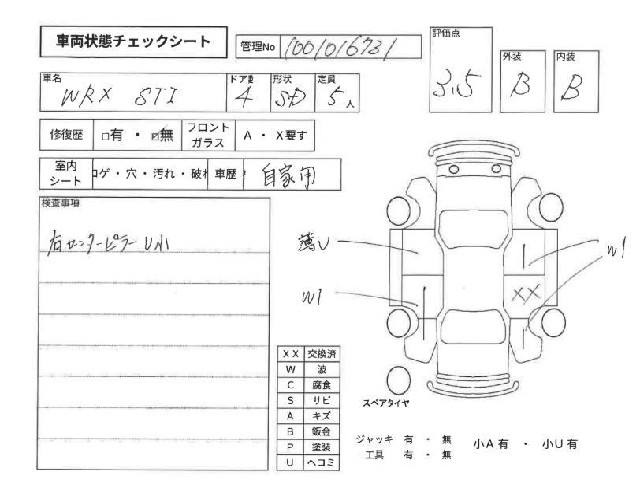 車両状態チェックシート
管理No 1001016731
評価点 3.5
外装 B
内装 B
車名 WRX STI
ドア数 4
形状 SD
定員 5人
修復歴 □有 ・ ☑無
フロントガラス A ・ X要す
室内シート コゲ・穴・汚れ・破れ
車歴 自家用
検査事項
右センターピラー U小
薄U
W1
W1
XX
XX 交換済
W 波
C 腐食
S サビ
A キズ
B 鈑金
P 塗装
U ヘコミ
スペアタイヤ
ジャッキ 有 ・ 無
工具 有 ・ 無
小A有 ・ 小U有